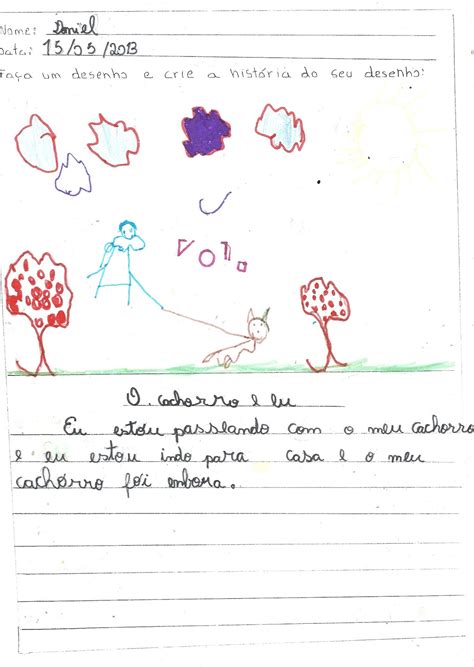 Nome: Daniel
Data: 15/05/2013
Faça um desenho e crie a história do seu desenho:
O. cachorro e eu
Eu estou passeando com o meu cachorro
e eu estou indo para casa e o meu
cachorro foi enbora.